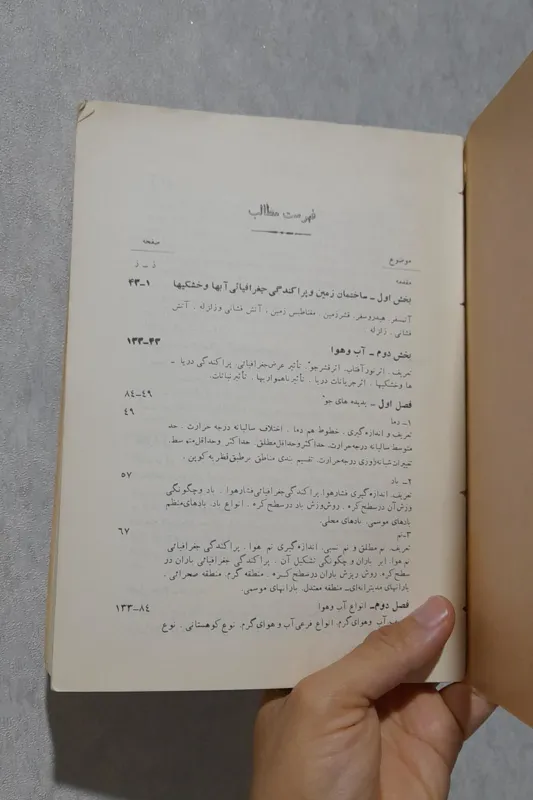 فهرست مطالب
موضوع صفحه
مقدمه ز ـ ز
بخش اول ـ ساختمان زمین و پراکندگی جغرافیائی آبها و خشکیها ۱ـ۴۳
آتسفر. هیدروسفر. قشر زمین. مغناطیس زمین، آتش فشانی و زلزله. آتش
فشانی. زلزله.
بخش دوم ـ آب و هوا ۴۳ـ۱۳۳
تعریف. اثر نور آفتاب. اثر قشر جو. تأثیر عرض جغرافیائی. پراکندگی دریا ـ
ها و خشکیها. اثر جریانات دریا. تأثیر ناهمواریها. تأثیر نباتات.
فصل اول ـ پدیده های جو ۴۹ـ۸۴
۱ـ دما ۴۹
تعریف و اندازه گیری. خطوط هم دما. اختلاف سالیانه درجه حرارت. حد
متوسط سالیانه درجه حرارت. حداکثر و حداقل مطلق. حداکثر و حداقل متوسط.
تغییرات شبانه روزی درجه حرارت. تقسیم بندی مناطق بر طبق نظر به کوپن.
۲ـ باد ۵۷
تعریف. اندازه گیری فشار هوا. پراکندگی جغرافیائی فشار هوا. باد و چگونگی
وزش آن در سطح کره. روش وزش باد در سطح کره. انواع باد. بادهای منظم
بادهای موسمی. بادهای محلی.
۳ـ نم ۶۷
تعریف. نم مطلق و نم نسبی. اندازه گیری نم هوا. پراکندگی جغرافیائی
نم هوا. ابر. باران و چگونگی تشکیل آن. پراکندگی جغرافیائی باران در
سطح کره. روش ریزش باران در سطح کره. منطقه گرم. منطقه صحرائی.
بارانهای مدیترانه ای ـ منطقه معتدل. بارانهای موسمی.
فصل دوم ـ انواع آب و هوا ۸۴ـ۱۳۳
آب و هوای گرم. انواع فرعی آب و هوای گرم. نوع کوهستانی. نوع